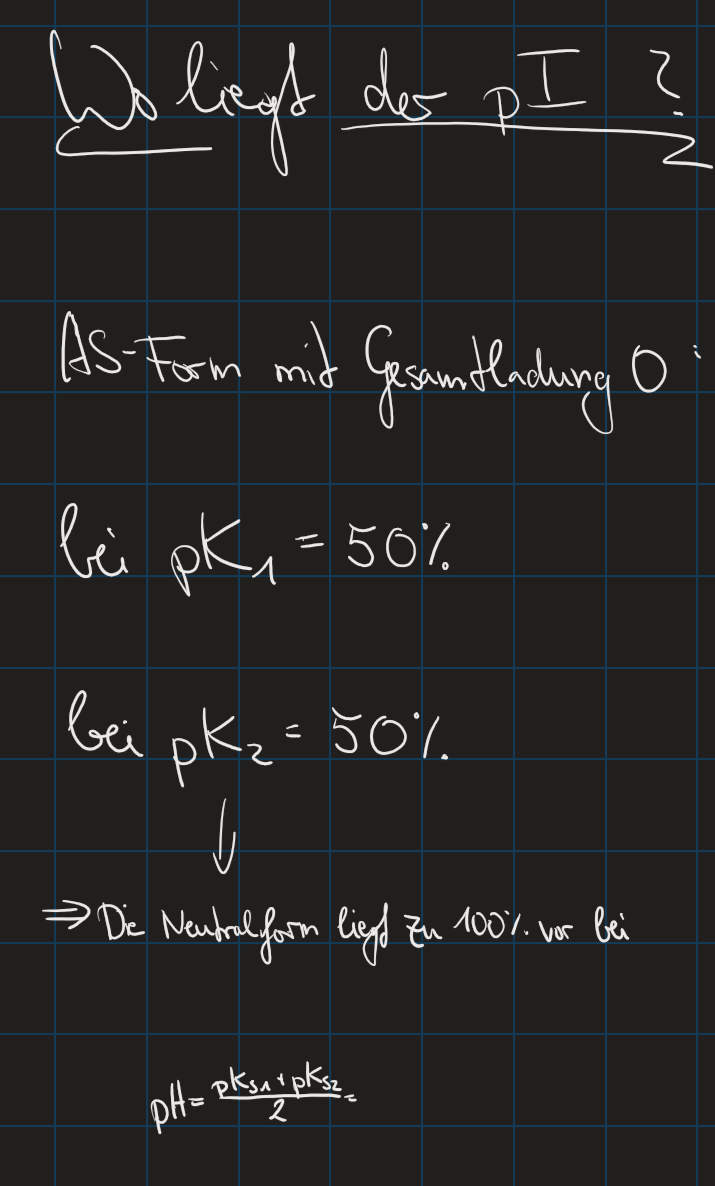 Wo liegt der pI ?
AS-Form mit Gesamtladung 0:
bei pK₁ = 50%
bei pK₂ = 50%
↓
⇒ Die Neutralform liegt zu 100% vor bei
pH = (pKs₁ + pKs₂)/2 =